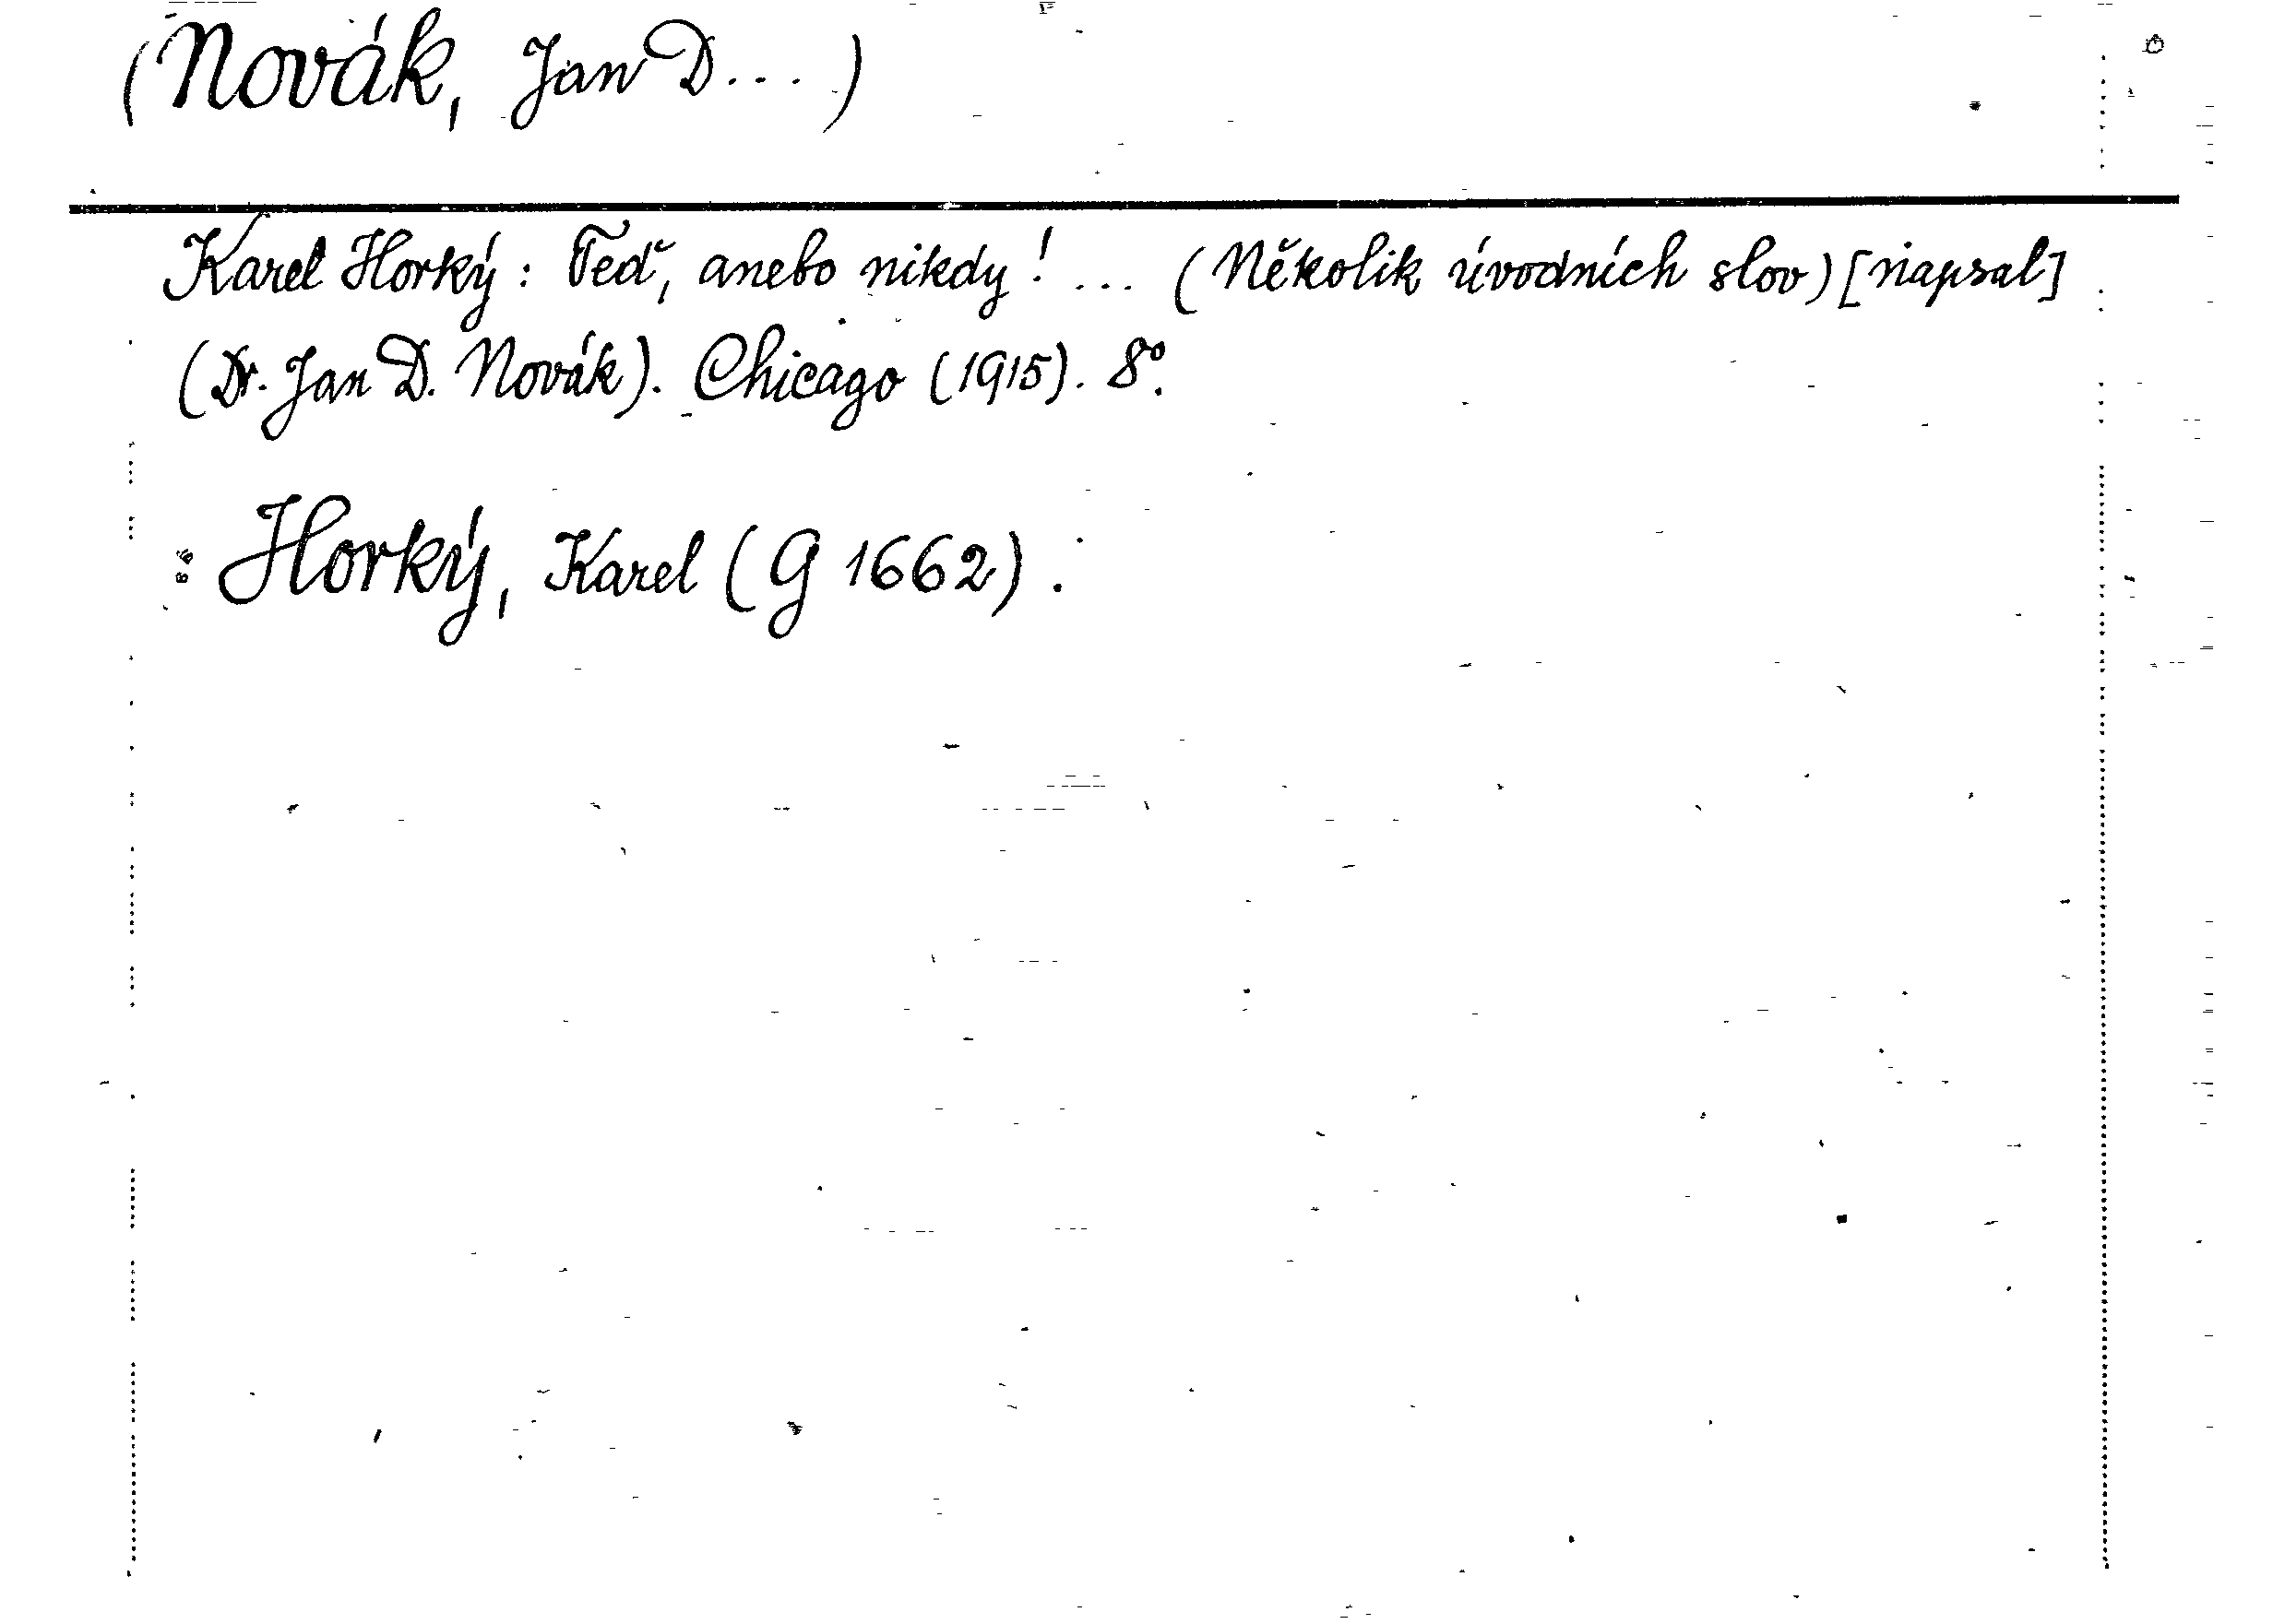 (Novák, Jan D...)
Karel Horký: Teď, anebo nikdy! ... (Několik úvodních slov) [napsal]
(Dr. Jan D. Novák). Chicago (1915). 8°.
: Horký, Karel (G 1662).